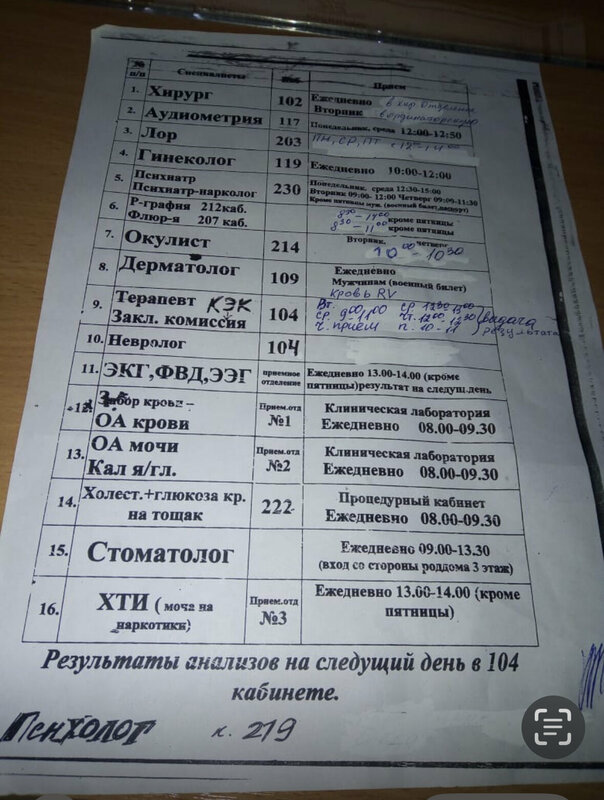 № п/п Специалисты Прием
1. Хирург 102 Ежедневно в хир. отделение
Вторник в ординаторскую
2. Аудиометрия 117 Понедельник, среда 12:00-12:50
3. Лор 203 ПН, СР, ПТ с 12⁰⁰-14⁰⁰
4. Гинеколог 119 Ежедневно 10:00-12:00
5. Психиатр
Психиатр-нарколог 230 Понедельник, среда 12:30-15:00
Вторник 09:00- 12:00 Четверг 09:00-11:30
Кроме пятницы муж. (военный билет,паспорт)
6. Р-графия 212каб. 8³⁰-14⁰⁰ кроме пятницы
Флюр-я 207 каб. 8³⁰-11⁰⁰ кроме пятницы
7. Окулист 214 Вторник. четверг
10⁰⁰-10³⁰
8. Дерматолог 109 Ежедневно
Мужчинам (военный билет)
кровь RV
9. Терапевт КЭК
Закл. комиссия 104 Вт. ср. 12³⁰-13⁰⁰
ср. 9⁰⁰-11⁰⁰ чт. 12⁰⁰-12³⁰ выдача
ч. прием п. 10-11 результата
10. Невролог 104
11. ЭКГ,ФВД,ЭЭГ приемное отделение Ежедневно 13.00-14.00 (кроме
пятницы)результат на следущ.день
12. Забор крови –
ОА крови Прием.отд №1 Клиническая лаборатория
Ежедневно 08.00-09.30
13. ОА мочи
Кал я/гл. Прием.отд №2 Клиническая лаборатория
Ежедневно 08.00-09.30
14. Холест.+глюкоза кр.
на тощак 222 Процедурный кабинет
Ежедневно 08.00-09.30
15. Стоматолог Ежедневно 09.00-13.30
(вход со стороны роддома 3 этаж)
16. ХТИ ( моча на
наркотики) Прием.отд №3 Ежедневно 13.00-14.00 (кроме
пятницы)
Результаты анализов на следущий день в 104
кабинете.
Психолог к. 219